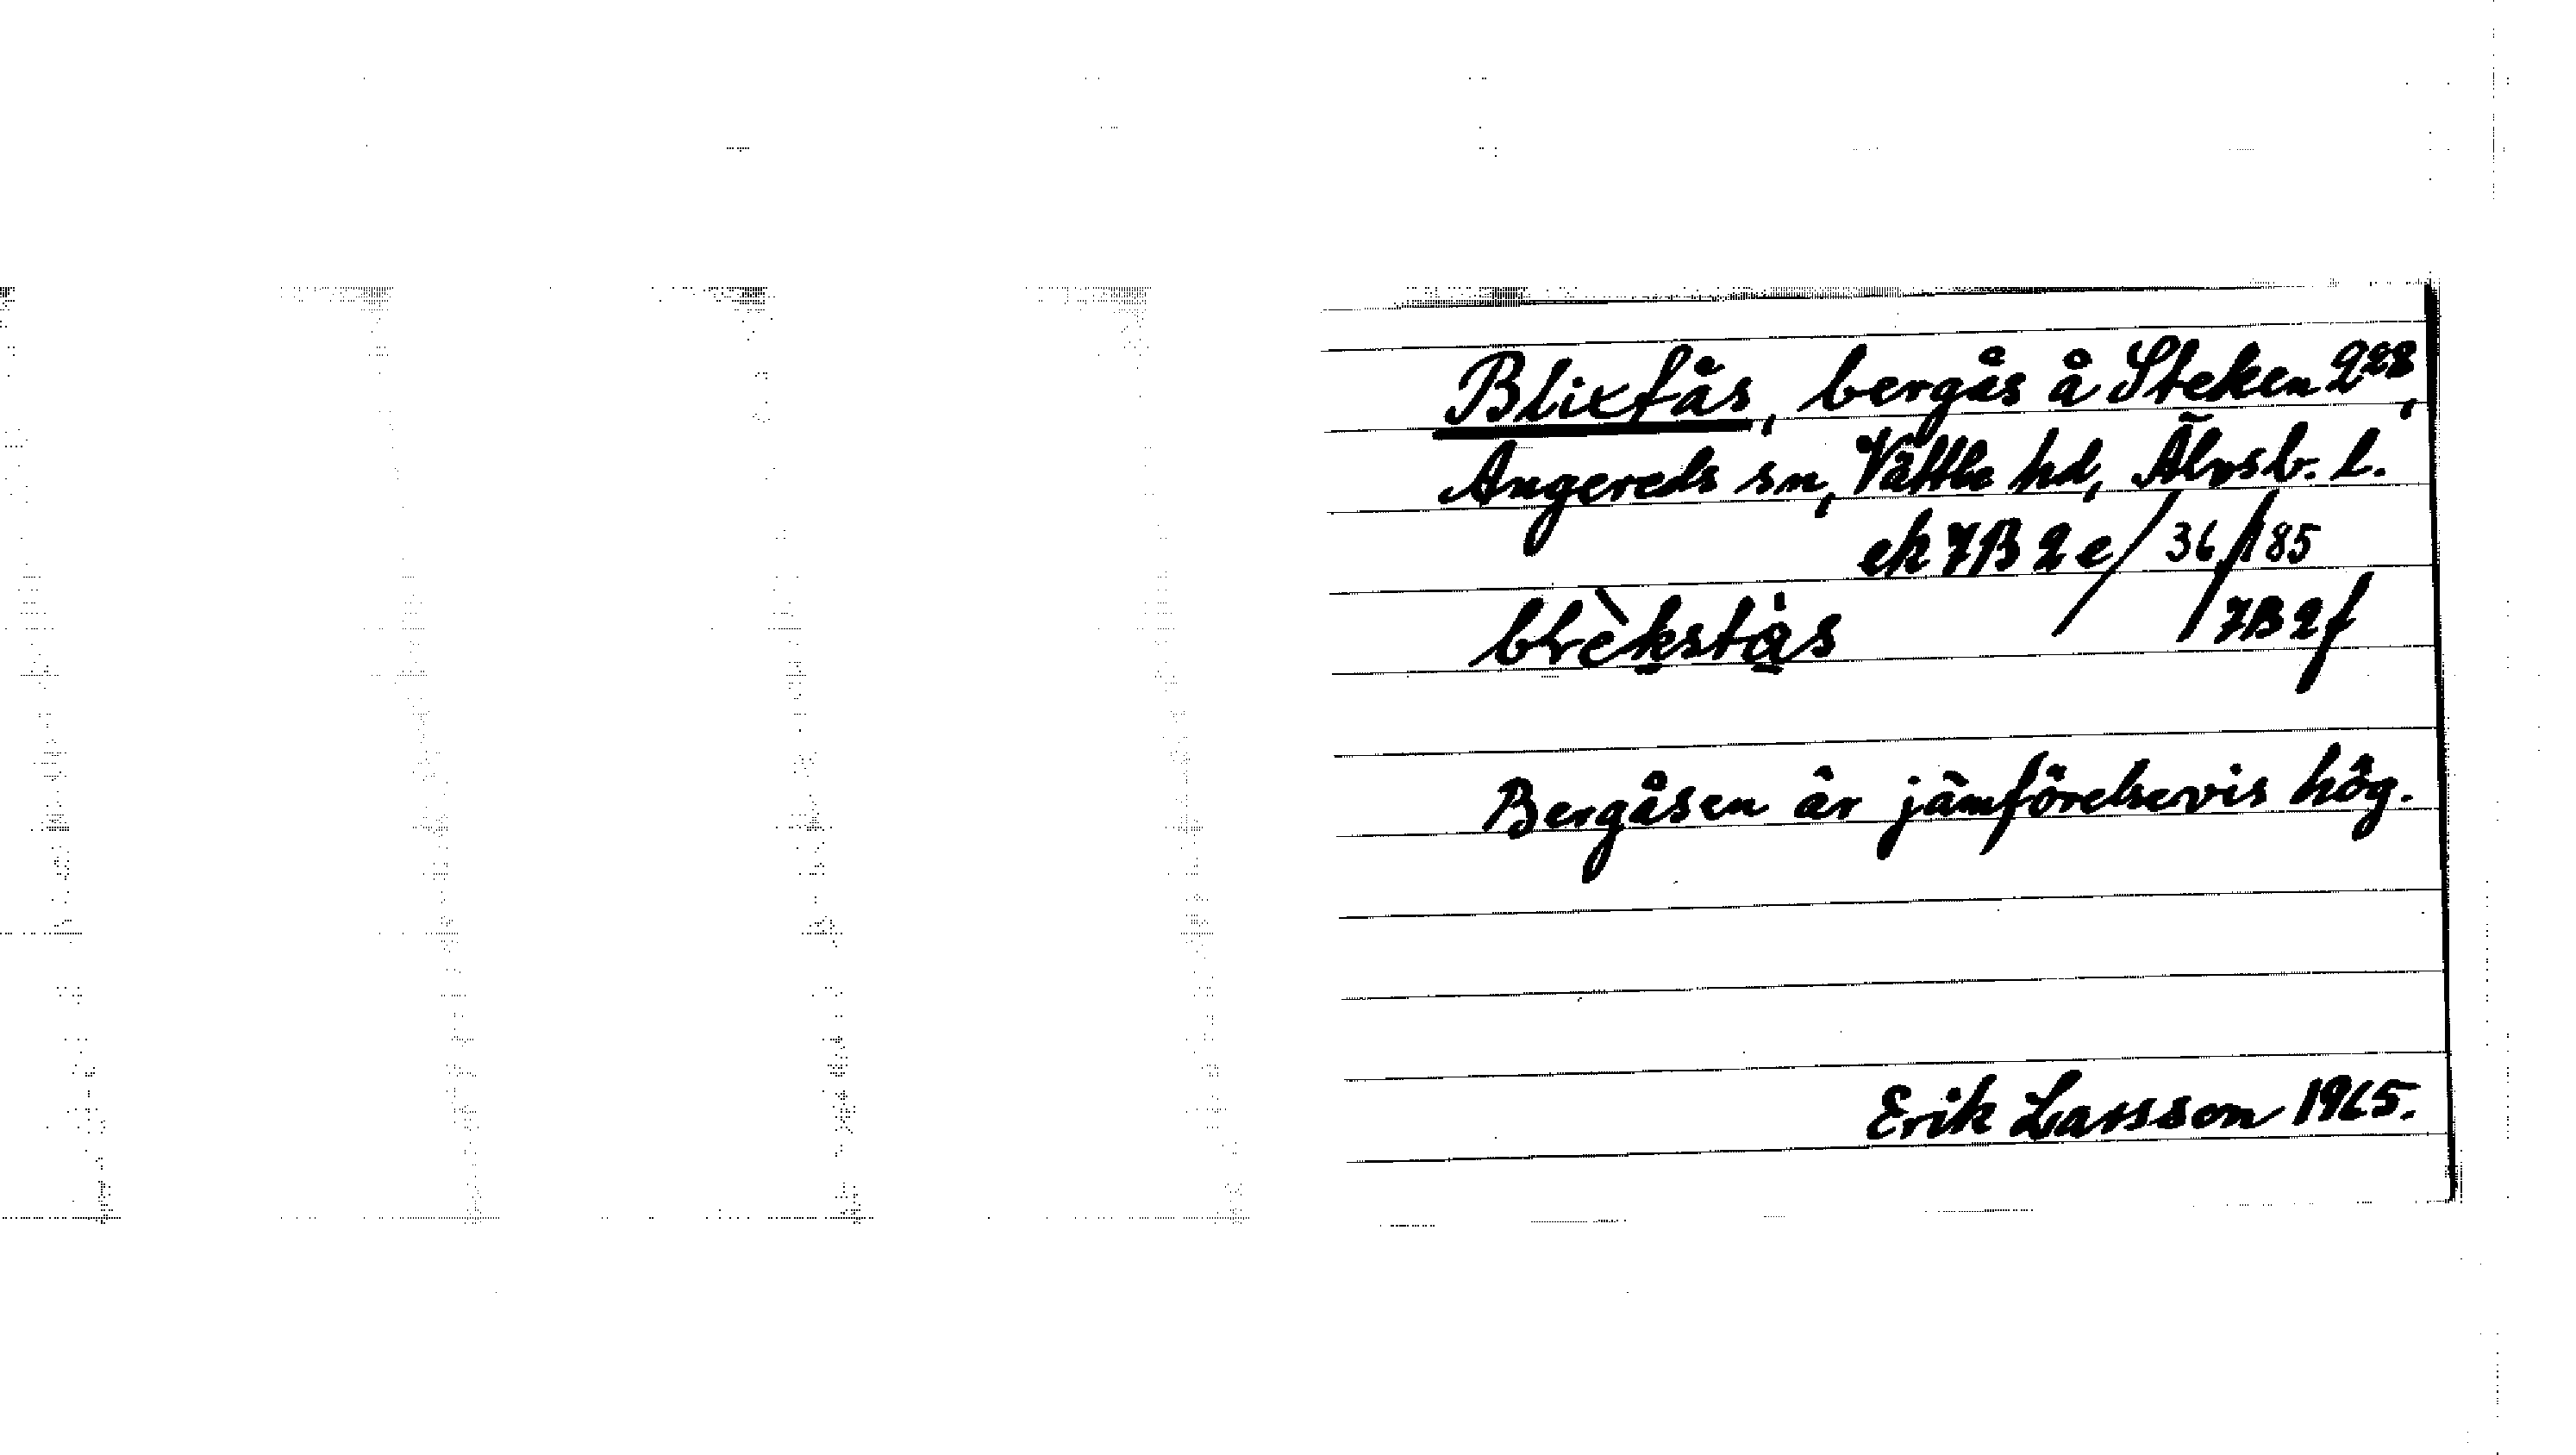 Blixtås, bergås å Steken 2²²8,
Angereds sn, Vättle hd, Älvsb. l.
ek 7B 2 e / 36 / 185
/ 7B 2 f
blèkstås
Bergåsen är jämförelsevis hög.
Erik Larsson 1965.